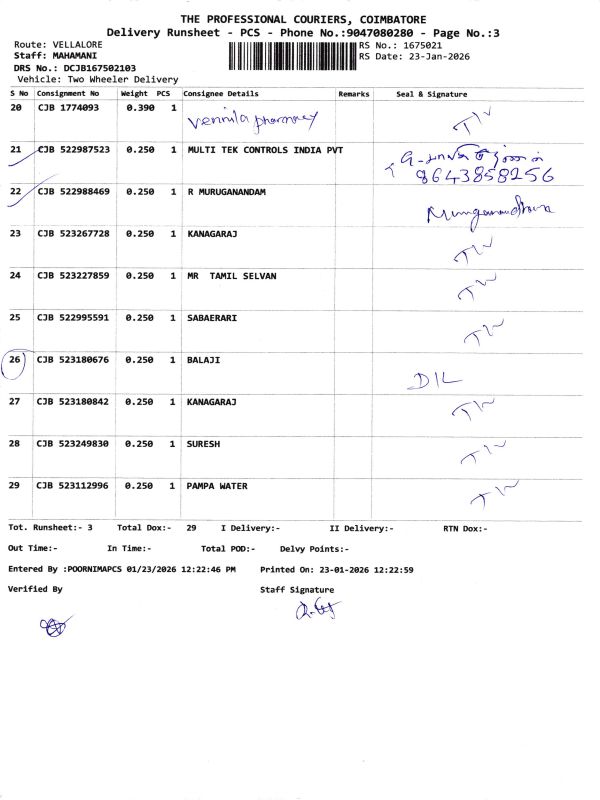 THE PROFESSIONAL COURIERS, COIMBATORE
Delivery Runsheet - PCS - Phone No.:9047080280 - Page No.:3
Route: VELLALORE
RS No.: 1675021
Staff: MAHAMANI
RS Date: 23-Jan-2026
DRS No.: DCJB167502103
Vehicle: Two Wheeler Delivery
S No Consignment No Weight PCS Consignee Details Remarks Seal & Signature
20 CJB 1774093 0.390 1 Vennila pharmacy
21 CJB 522987523 0.250 1 MULTI TEK CONTROLS INDIA PVT
8643858256
22 CJB 522988469 0.250 1 R MURUGANANDAM
23 CJB 523267728 0.250 1 KANAGARAJ
24 CJB 523227859 0.250 1 MR TAMIL SELVAN
25 CJB 522995591 0.250 1 SABAERARI
26 CJB 523180676 0.250 1 BALAJI D/L
27 CJB 523180842 0.250 1 KANAGARAJ
28 CJB 523249830 0.250 1 SURESH
29 CJB 523112996 0.250 1 PAMPA WATER
Tot. Runsheet:- 3 Total Dox:- 29 I Delivery:- II Delivery:- RTN Dox:-
Out Time:- In Time:- Total POD:- Delvy Points:-
Entered By :POORNIMAPCS 01/23/2026 12:22:46 PM Printed On: 23-01-2026 12:22:59
Verified By Staff Signature